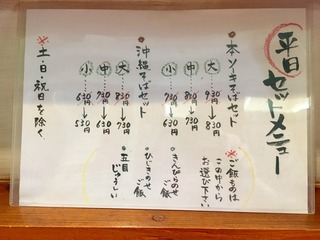 平日
セットメニュー
●本ソーキそばセット
大 930円→830円
中 830円→730円
小 730円→630円
●沖縄そばセット
大 830円→730円
中 730円→630円
小 630円→530円
※ご飯ものは
この中から
お選び下さい
・きんぴらのせ
ご飯
・ひじきのせ
ご飯
・五目
じゅうしい
※土・日・祝日を除く